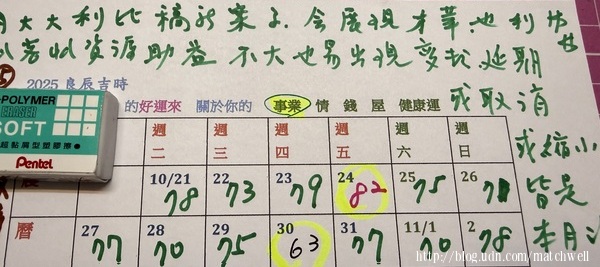 月大大利比稿新案子會展現才華也利
以若收資源助益 不大也易出現變於延期
或取消
2025 良辰吉時
的好運來 關於你的 事業 情 錢 屋 健康運
POLYMER
ERASER
SOFT
超黏屑型塑膠擦
Pentel
週二 週三 週四 週五 週六 週日
或縮小
10/21 22 23 24 25 26
78 73 79 82 75
皆是
曆 27 28 29 30 31 11/1 2
77 70 75 63 77 70 78
本月
http://blog.udn.com/matchwell